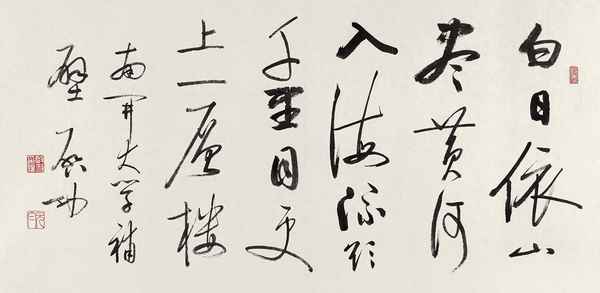 白日依山
盡黃河
入海流欲
千里目更
上一層樓
南開大學補
壁 啟功